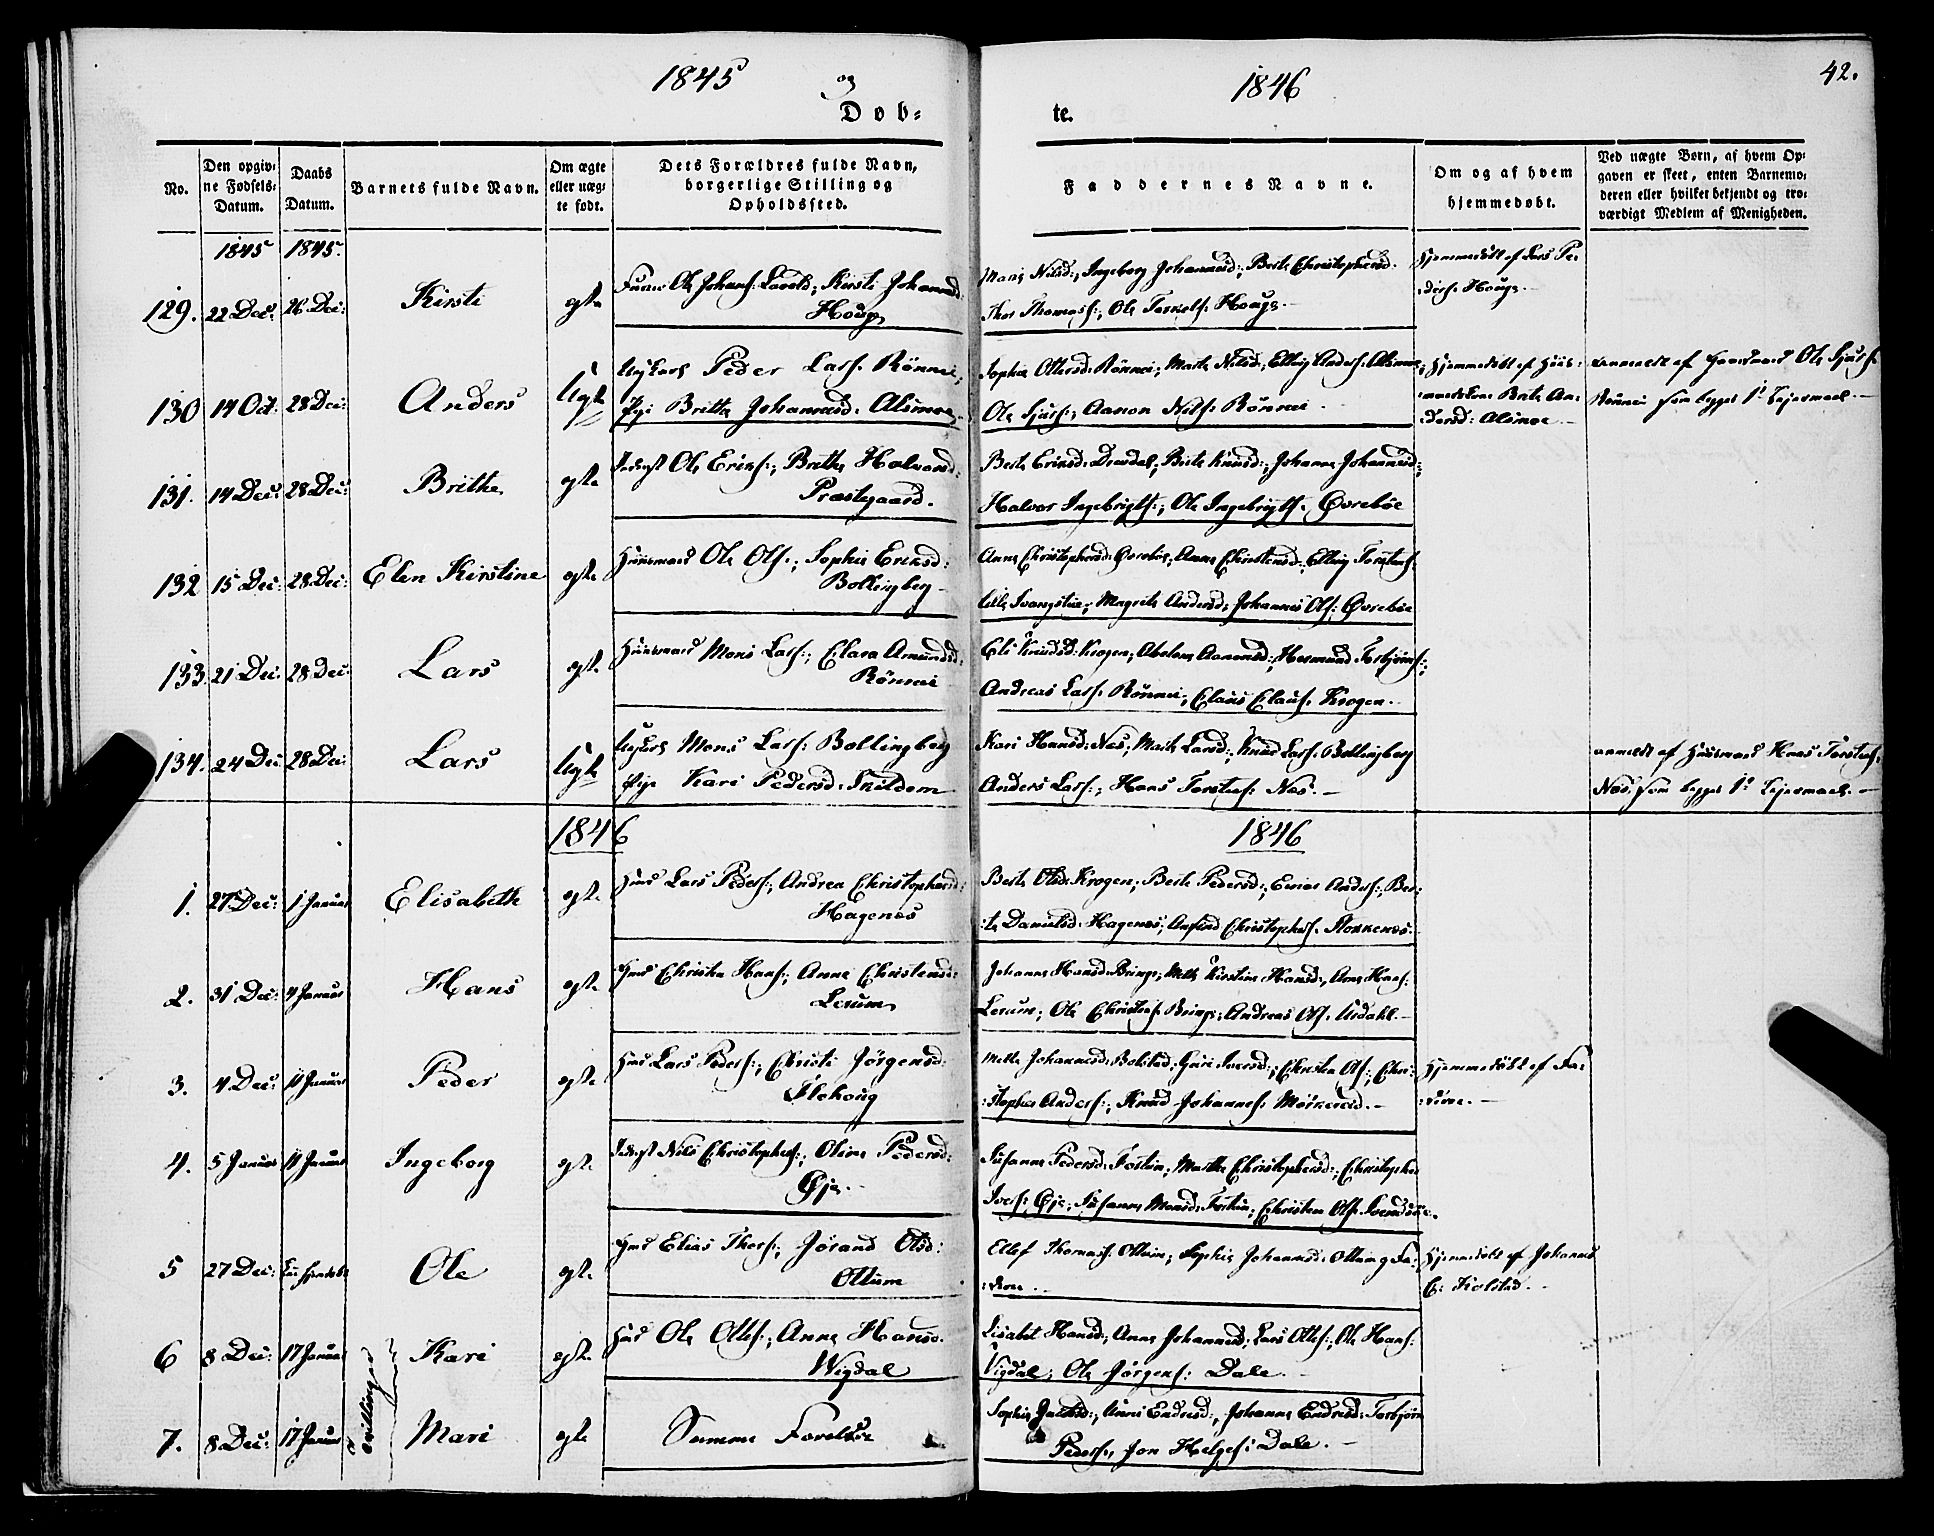 1845
og
1846
42.
Døb-
te.
No.
Den opgiv-
ne Fødsels-
Datum.
Daabs
Datum.
Barnets fulde Navn.
Om ægte
eller uæg-
te født.
Dets Forældres fulde Navn,
borgerlige Stilling og
Opholdssted.
Faddernes Navne.
Om og af hvem
hjemmedøbt.
Ved uægte Børn, af hvem Op-
gaven er skeet, enten Barnemo-
deren eller hvilket bekjendt og tro-
værdigt Medlem af Menigheden.
1845 1845.
129. 22 Dec: 26 Dec: Kirsti egte Ole Johans: Kirsti Johannesd:
Houge
Nilsd:, Ingeborg Johannesd:, Berte Christophersd:
Thor Thomass:, Ole Houge
Hjemmedöbt af Lars Pe-
ders: Houge
130 14 Oct: 28 Dec: Anders Uegte Ungkarl Peder Lars: Rönnei,
Pige Britte Johannesd: Alsmoe
Sophie Ottersd: Rönnei; Marte Nilsd:, Elling Anders: Alsmoe
Ole Sjurs:, Aanon Nils: Rönnei
Hjemmedöbt af Huus-
mandskone Berte An-
dersd: Alsmoe
anmeldt af Ole Sjurs:
Rönnei som begges 1ste Leiermaal
131. 14 Dec: 28 Dec: Brithe egte Inderst Ole Eriks:; Brithe Halvorsd:
Præstgaard.
Berte Eriksd: Berte Knudsd:, Johanne Johannesd:,
Halvor Ingebrigts:; Ole Ingebrigts: Øvrebøe
132 15 Dec: 28 Dec: Elen Kirstine egte Huusmand Ole Ols:; Sophie Eriksd:
Bollingberg
Anne Christophersd: Øvrebøe; Anne Christensd:, Elling Torstens:
Magrete Andersd; Johannes Ols: Øvrebøe
133 21 Dec: 28 Dec: Lars egte Huusmand Mons Lars:; Clara Amundsd:
Rönnei
Eli Knudsd: Krogen; Abelone Aanonsd:, Hermund Torbjörns:,
Andreas Lars: Rönnei; Claus Claus: Krogen
134. 24 Dec 28 Dec: Lars Uegte Ungkarl Mons Lars: Bollingberg
Pige Kari Pedersd: Skildem
Kari Hansd: Næs; Marte Larsd:, Knud Lars: Bollingberg
Anders Lars:; Hans Torstens: Næs.
anmeldt af Huusmand Hans Torstens:
Næs, som begges 1ste Leiermaal.
1846
1846
1. 27 Dec: 1 Januar Elisabeth egte Huusmd Lars Peders:; Andrea Christophersd:
Hagenæs
Berte Olsd: Krogen; Berte Pedersd:; Anders:, Ber-
te Danielsd: Hagenæs; Anfind Christophers: Flokkenæs
2. 31 Dec: 4 Januar Hans egte Huusmd Christen Hans:; Anne Christensd:
Lerum
Johanne Hansd: Bringe; Mette Kirstine Hansd:, Arne Hans:
Lerum; Ole Christens: Bringe; Andreas Ols: Urdahl
3. 4 Dec: 11 Januar Peder egte Huusmd Lars Peders:; Christi Jörgensd:
Flohoug
Mette Johannesd: Bolstad; Guri Iversd:; Christen Ols:, Chri-
stopher Anders:, Knud Johannes: Mörkereid
Hjemmedöbt af Fa-
deren.
4. 5 Januar 11 Januar Ingeborg egte Inderst Nils Christophers:; Oline Pedersd:
Øje
Susanne Pedersd: Fortun; Marthe Christophersd:; Christopher
Ivers: Øje; Susanne Monsd: Fortun; Christen Ols:
5 27 Dec: Ole egte Huusmd Elias Thors:; Jörand Olsd:
Ottum
Ellef Thomass: Ottum; Sophie Johannesd: Ottum og Fa-
deren
Hjemmedöbt af Johannes
C: Kolstad
6 8 Dec: 17 Januar Kari egte Huusmd Ole Ottes:; Anne Hansd:
Wigdal
Lisabet Hansd:, Anne Johannesd:, Lars Ottes:, Ole Hans:
Vigdal; Ole Jörgens: Dale
Tvillinger
7. 8 Dec: 17 Januar Mari egte Samme Foreldre
Sophie Anne Endresd:, Johanne Endresd: Torbjörn
Peders:, Jon Helges: Dale.